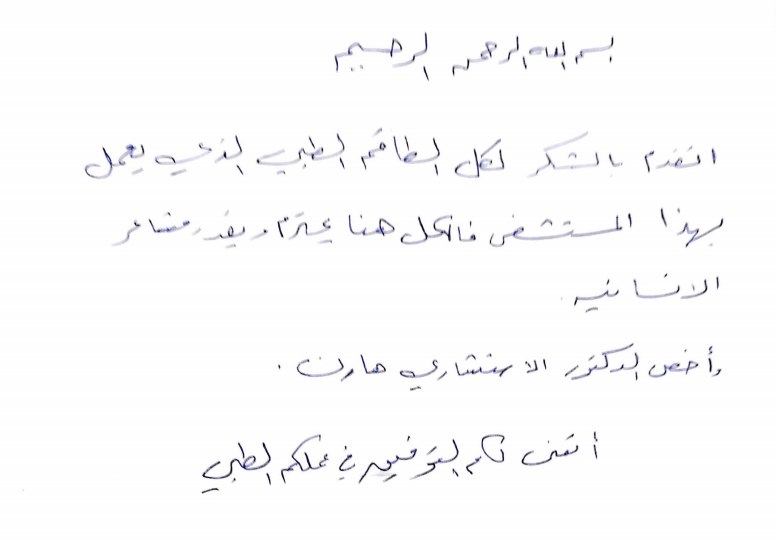 بسم الله الرحمن الرحيم
اتقدم بالشكر لكل الطاقم الطبي الذي يعمل
بهذا المستشفى فالكل هنا يحترم ويقدر مشاعر
الانسانيه
وأخص الدكتور الاستشاري هارون .
أتمنى لكم التوفيق في عملكم الطبي